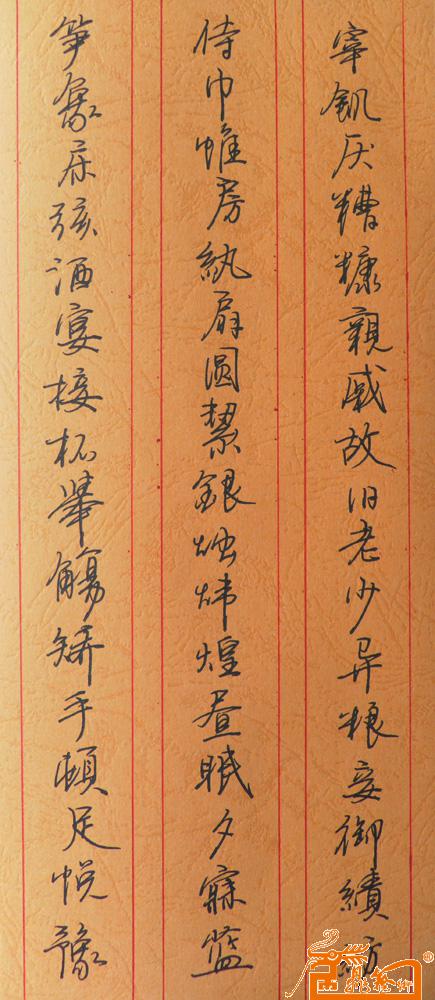 宰飢厌糟糠親戚故旧老少异粮妾御績紡
侍巾帷房紈扇圆絜銀烛炜煌昼眠夕寐蓝
笋象床弦酒宴接杯舉觴矯手頓足悦豫